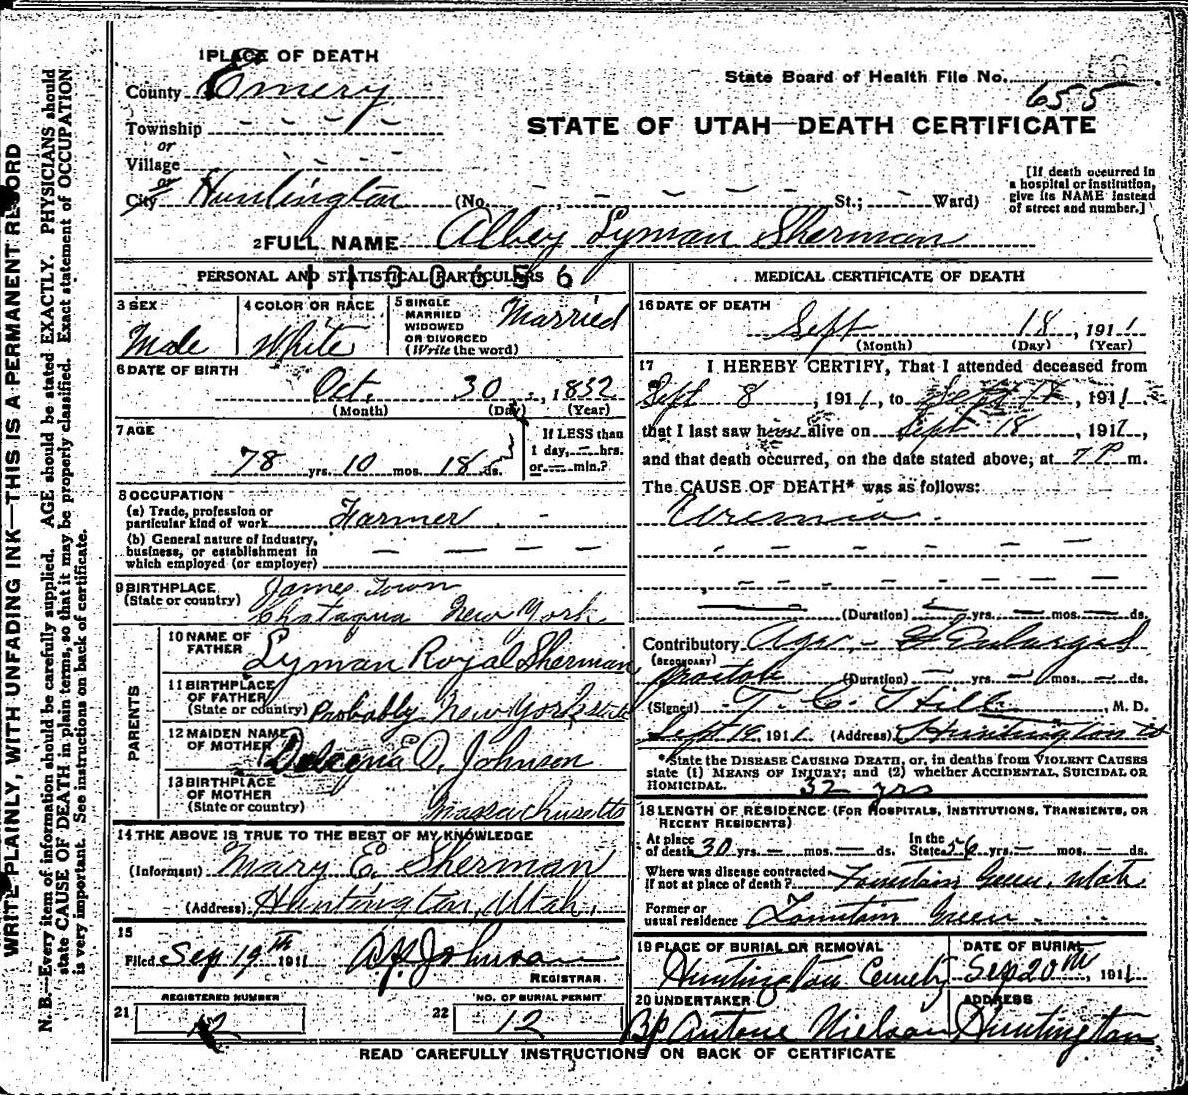 WRITE PLAINLY, WITH UNFADING INK—THIS IS A PERMANENT RECORD
N. B.—Every item of information should be carefully supplied. AGE should be stated EXACTLY. PHYSICIANS should
state CAUSE OF DEATH in plain terms, so that it may be properly classified. Exact statement of OCCUPATION
is very important. See instructions on back of certificate.
1 PLACE OF DEATH
County Emery
State Board of Health File No.
655
Township
or
STATE OF UTAH—DEATH CERTIFICATE
Village
or
City Huntington (No. , St.; Ward)
[If death occurred in
a hospital or institution,
give its NAME instead
of street and number.]
2 FULL NAME Albey Lyman Sherman
PERSONAL AND STATISTICAL PARTICULARS
1100656
3 SEX
Male
4 COLOR OR RACE
White
5 SINGLE
MARRIED
WIDOWED
OR DIVORCED
(Write the word)
Married
6 DATE OF BIRTH
Oct. 30, 1832
(Month) (Day) (Year)
7 AGE
78 yrs. 10 mos. 18 ds.
If LESS than
1 day, — hrs.
or — min.?
8 OCCUPATION
(a) Trade, profession or
particular kind of work Farmer
(b) General nature of industry,
business, or establishment in
which employed (or employer)
9 BIRTHPLACE
(State or country)
James Town
Chataqua New York
PARENTS
10 NAME OF
FATHER
Lyman Royal Sherman
11 BIRTHPLACE
OF FATHER
(State or country) Probably New York State
12 MAIDEN NAME
OF MOTHER
Delcena D. Johnson
13 BIRTHPLACE
OF MOTHER
(State or country)
Massachusetts
14 THE ABOVE IS TRUE TO THE BEST OF MY KNOWLEDGE
(Informant) Mary E. Sherman
(Address) Huntington, Utah.
15
Filed Sep 19th 1911 Johnson
REGISTRAR
REGISTERED NUMBER
21 12
NO. OF BURIAL PERMIT
22 12
MEDICAL CERTIFICATE OF DEATH
16 DATE OF DEATH
Sept 18, 1911
(Month) (Day) (Year)
17 I HEREBY CERTIFY, That I attended deceased from
Sept 8, 1911, to Sept 18, 1911
that I last saw him alive on Sept 18, 1911,
and that death occurred, on the date stated above, at 7 P m.
The CAUSE OF DEATH* was as follows:
Uremia
(Duration) yrs. — mos. — ds.
Contributory Age - Enlarged
(SECONDARY)
(Duration) — yrs. — mos. — ds.
(Signed) T. C. Hill, M. D.
Sept 19, 1911 (Address) Huntington
*State the DISEASE CAUSING DEATH, or, in deaths from VIOLENT CAUSES
state (1) MEANS OF INJURY; and (2) whether ACCIDENTAL, SUICIDAL OR
HOMICIDAL.
32 yrs
18 LENGTH OF RESIDENCE (FOR HOSPITALS, INSTITUTIONS, TRANSIENTS, OR
RECENT RESIDENTS)
At place
of death 30 yrs. — mos. — ds.
In the
State 56 yrs. — mos. — ds.
Where was disease contracted
if not at place of death? Fountain Green, Utah
Former or
usual residence Fountain Green
19 PLACE OF BURIAL OR REMOVAL
Huntington Cemety
DATE OF BURIAL
Sep 20th, 1911
20 UNDERTAKER
Antone Nielson
ADDRESS
Huntington
READ CAREFULLY INSTRUCTIONS ON BACK OF CERTIFICATE